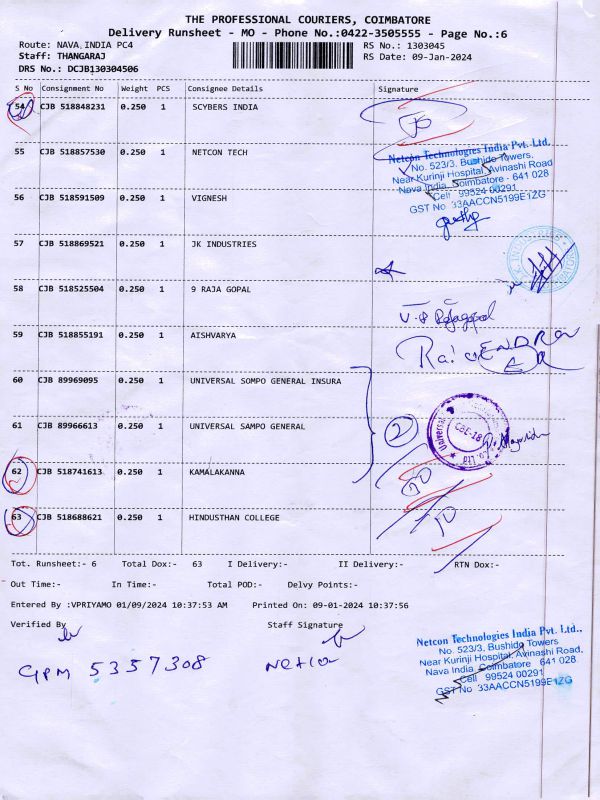 THE PROFESSIONAL COURIERS, COIMBATORE
Delivery Runsheet - MO - Phone No.:0422-3505555 - Page No.:6
Route: NAVA INDIA PC4 RS No.: 1303045
Staff: THANGARAJ RS Date: 09-Jan-2024
DRS No.: DCJB130304506
S No Consignment No Weight PCS Consignee Details Signature
54 CJB 518848231 0.250 1 SCYBERS INDIA
55 CJB 518857530 0.250 1 NETCON TECH
Netcon Technologies India Pvt. Ltd.
No. 523/3, Bushido Towers,
Near Kurinji Hospital, Avinashi Road
Nava India, Coimbatore - 641 028
Cell 99524 00291
GST No 33AACCN5199E1ZG
56 CJB 518591509 0.250 1 VIGNESH
57 CJB 518869521 0.250 1 JK INDUSTRIES
58 CJB 518525504 0.250 1 9 RAJA GOPAL
59 CJB 518855191 0.250 1 AISHVARYA
60 CJB 89969095 0.250 1 UNIVERSAL SOMPO GENERAL INSURA
61 CJB 89966613 0.250 1 UNIVERSAL SOMPO GENERAL
2
CBE-18
62 CJB 518741613 0.250 1 KAMALAKANNA
63 CJB 518688621 0.250 1 HINDUSTHAN COLLEGE
Tot. Runsheet:- 6 Total Dox:- 63 I Delivery:- II Delivery:- RTN Dox:-
Out Time:- In Time:- Total POD:- Delvy Points:-
Entered By :VPRIYAMO 01/09/2024 10:37:53 AM Printed On: 09-01-2024 10:37:56
Verified By Staff Signature
Netcon Technologies India Pvt. Ltd.,
No. 523/3, Bushido Towers
Near Kurinji Hospital, Avinashi Road,
Nava India, Coimbatore 641 028.
Cell 99524 00291
GST No 33AACCN5199E1ZG
5357308